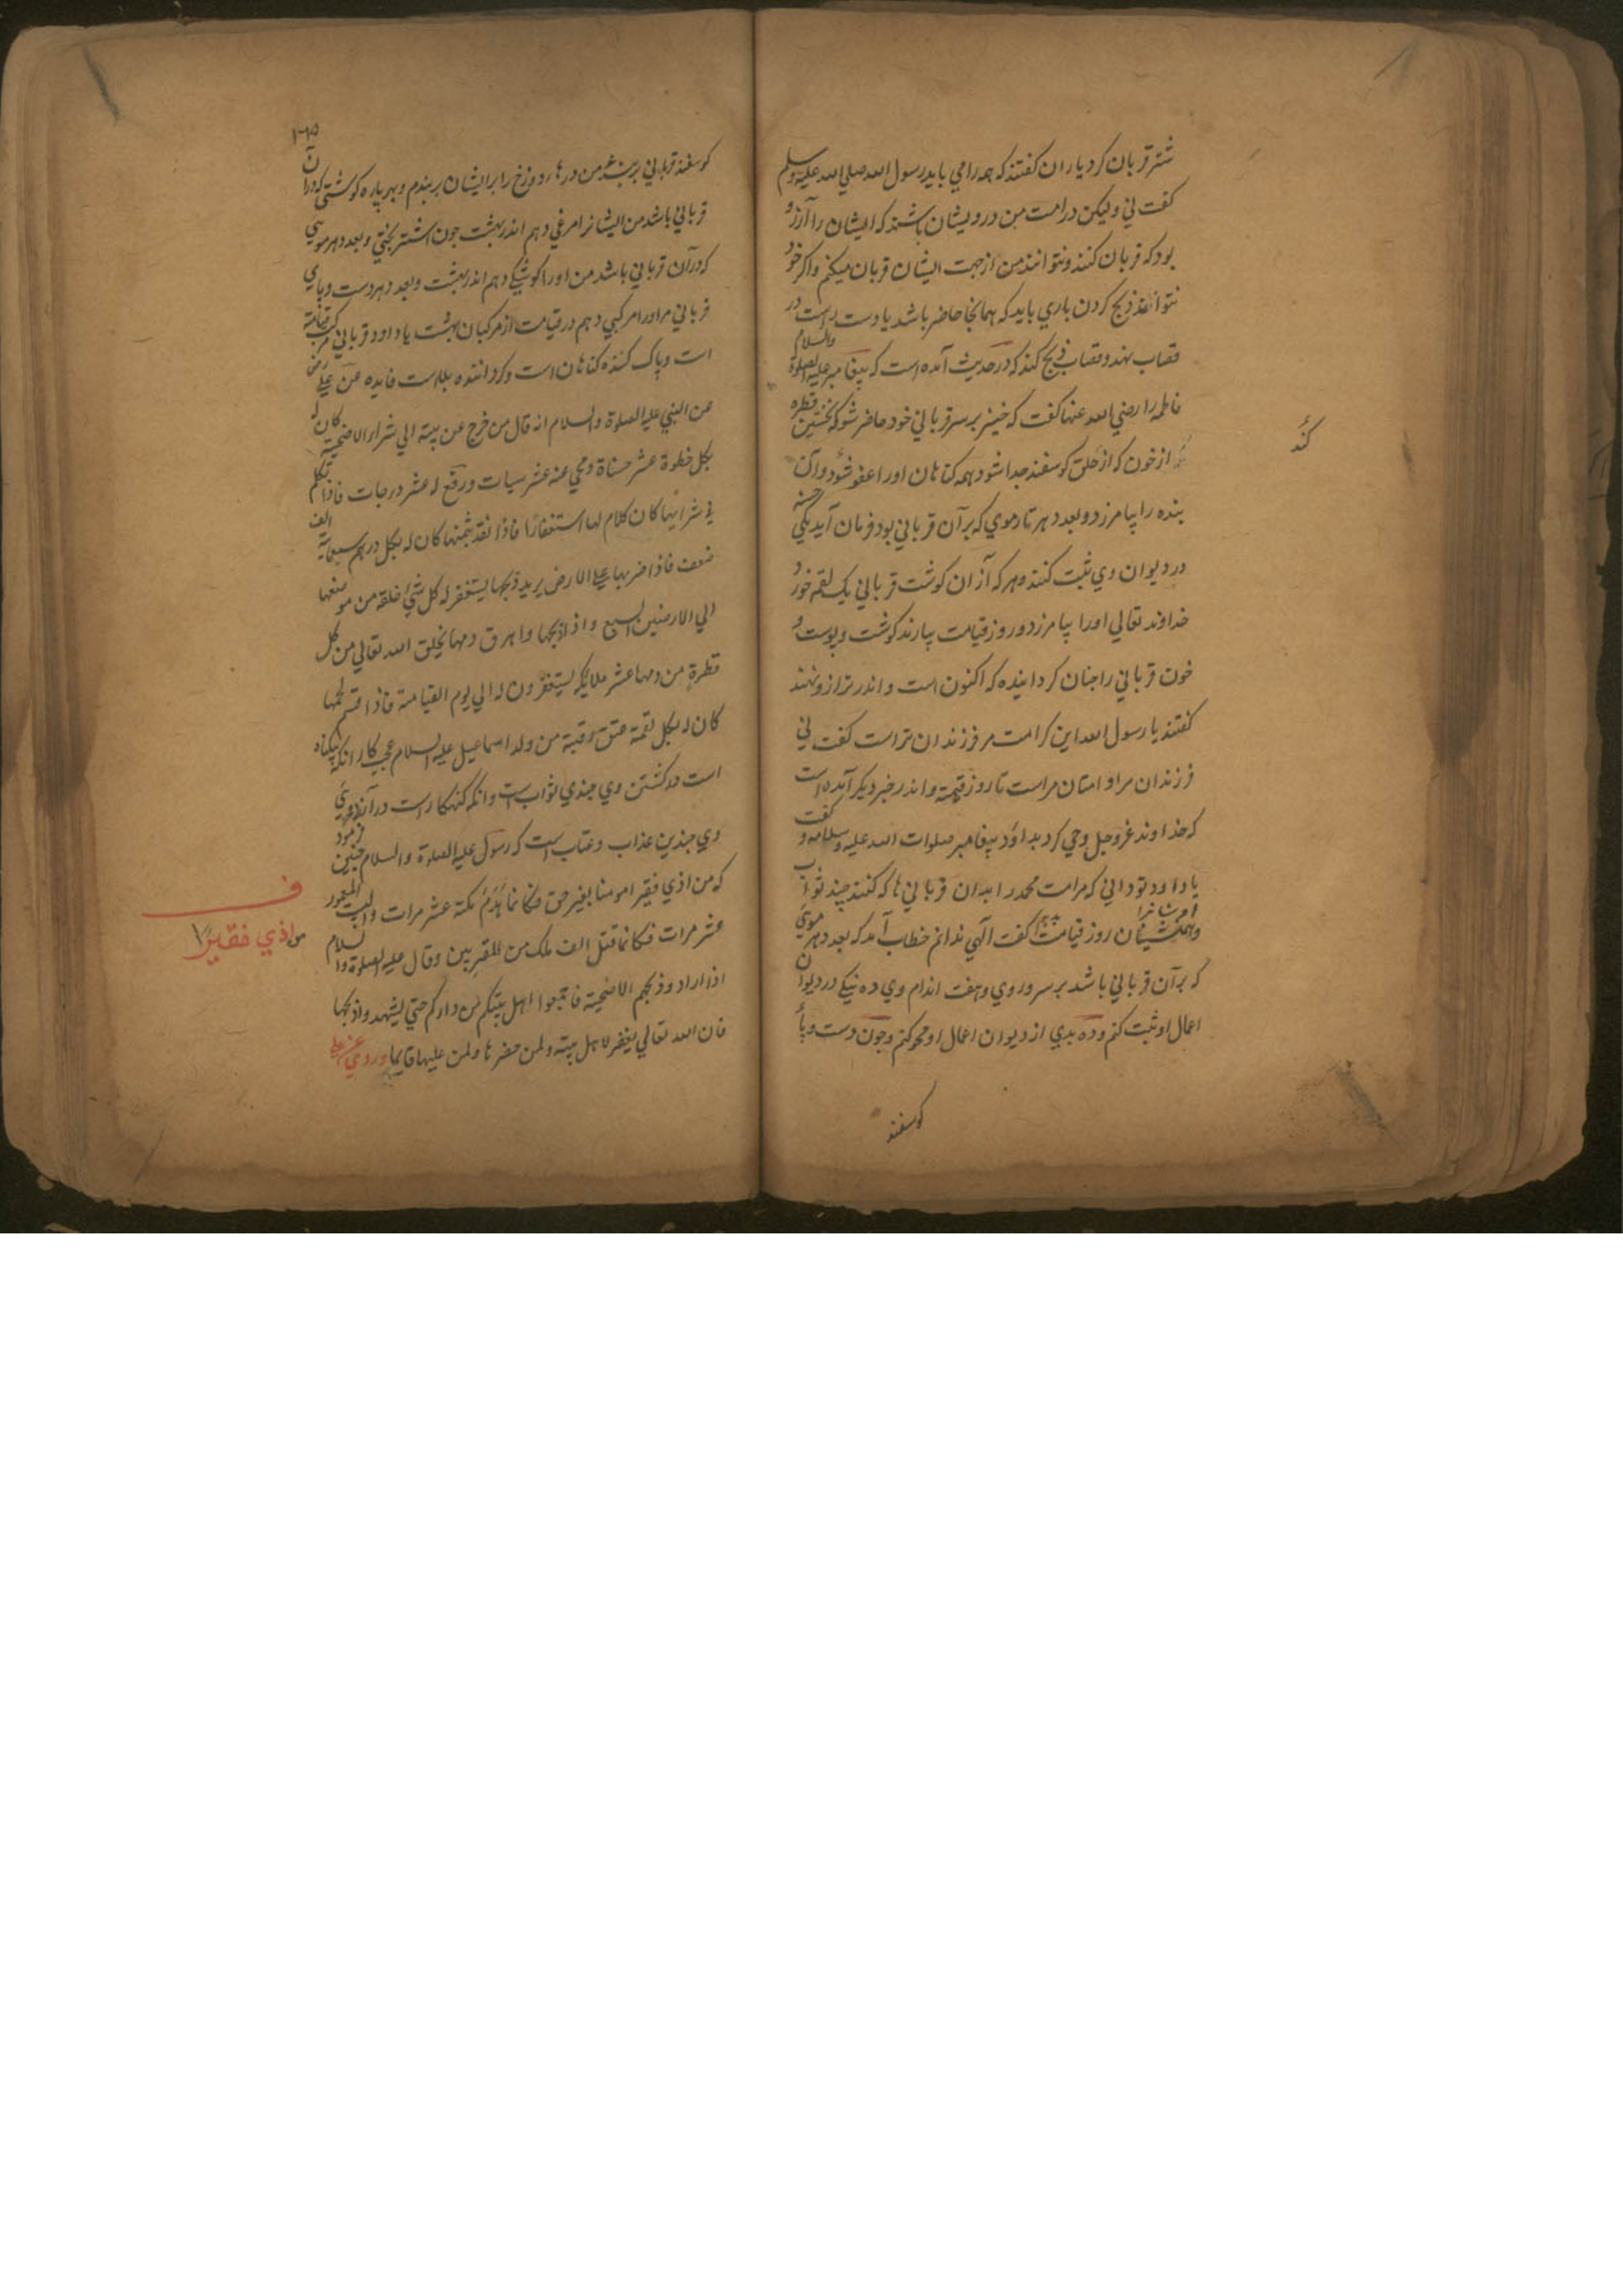 شتر قربان کرد یاران کفتند که همه را می باید رسول الله صلی الله علیه وسلم
کفت نی ولیکن در امت من درویشان باشند که ایشان را آرزو
بود که قربان کنند ونتوانند من از جهت ایشان قربان میکنم واکر خود
نتواند ذبح کردن باری باید که همانجا حاضر باشد یا دست راست در
قصاب نهد وقصاب ذبح کند که در حدیث آمده است که پیغامبر علیه الصلوة والسلام
فاطمه را رضی الله عنها کفت که خیز بر سر قربانی خود حاضر شو که نخستین قطره
از خون که از حلق کوسفند جدا شود همه کناهان او را عفو شود وآن
بنده را بیامرزد وبعدد هر تار موی که بر آن قربانی بود فرمان آید یکی حسنه
در دیوان وی ثبت کنند وهر که از آن کوشت قربانی یک لقمه خورد
خداوند تعالی او را بیامرزد وروز قیامت بیارند کوشت وپوست و
خون قربانی را چنان کردانیده که اکنون است واندر ترازو نهند
کفتند یا رسول الله این کرامت مر فرزندان تراست کفت نی
فرزندان مرا وامتان مراست تا روز قیمة واندر خبر دیکر آمده است
که خداوند عز وجل وحی کرد بداؤد پیغامبر صلوات الله علیه وسلامه و کفت
یا داود تو دانی که مر امت محمد را بدان قربانی ها که کنند چند ثواب
روز قیامت کفت آلهی ندانم خطاب آمد که بعدد هر موئی
که بر آن قربانی باشد بر سر وروی وهفت اندام وی ده نیکی در دیوان
اعمال او ثبت کنم وده بدی از دیوان اعمال او محو کنم وچون دست وپا
کوسفند
کند
کوسفند قربانی من درهاء دوزخ را بر ایشان بربندم وبهر پاره کوشتی که در آن
قربانی باشد من ایشانرا مرغی دهم اندر بهشت چون اشتر بختی وبعدد هر موی
که در آن قربانی باشد من او را کوشکی دهم اندر بهشت وبعدد هر دست وپای
قربانی مر او را مرکبی دهم در قیامت از مرکبان بهشت یا داود قربانی مرکب قیامة
است وپاک کننده کناهان است وکرداننده بلاست فایده عن علی رض
عن النبی علیه الصلوة والسلام انه قال من خرج عن بیته الی شراء الاضحیة کان له
بکل خطوة عشر حسناة ومحی عنه عشر سیات ورفع له عشر درجات فاذا تکلم
فی شرائها کان کلام لها استغفارًا فاذا نقد بثمنها کان له بکل درهم سبعمایة الف
ضعف فاذا ضربها علی الارض یرید ذبحها یستغفر له کل شئ خلقه من موضعها
الی الارضین السبع واذا ذبحها واهرق دمها یخلق الله تعالی من کل
قطرة من دمها عشر ملایکة یستغفرون له الی یوم القیامة فاذا قسم لحمها
کان له بکل لقمة عتق رقبة من ولد اسماعیل علیه السلام عجب کار انکه بیکناه
است در کشتن وی چندین ثواب است وانکه کنهکار است در
وی چندین عذاب وعتاب است که رسول علیه الصلوة والسلام چنین فرمود
که من اذی فقیرا مومنا بغیر حق فکانما هدم مکة عشر مرات والبیت المعمور
عشر مرات فکانما قتل الف ملک من المقربین وقال علیه الصلوة والسلام
اذا اراد وذبحکم الاضحیة فاجمعوا اهل بیتکم من دارکم حتی لیشهد واذبحها
فان الله تعالی یغفر لاهل بیته ولمن حضرها ولمن علیها قایما وروی عن علی
ف
من اذی فقیرًا